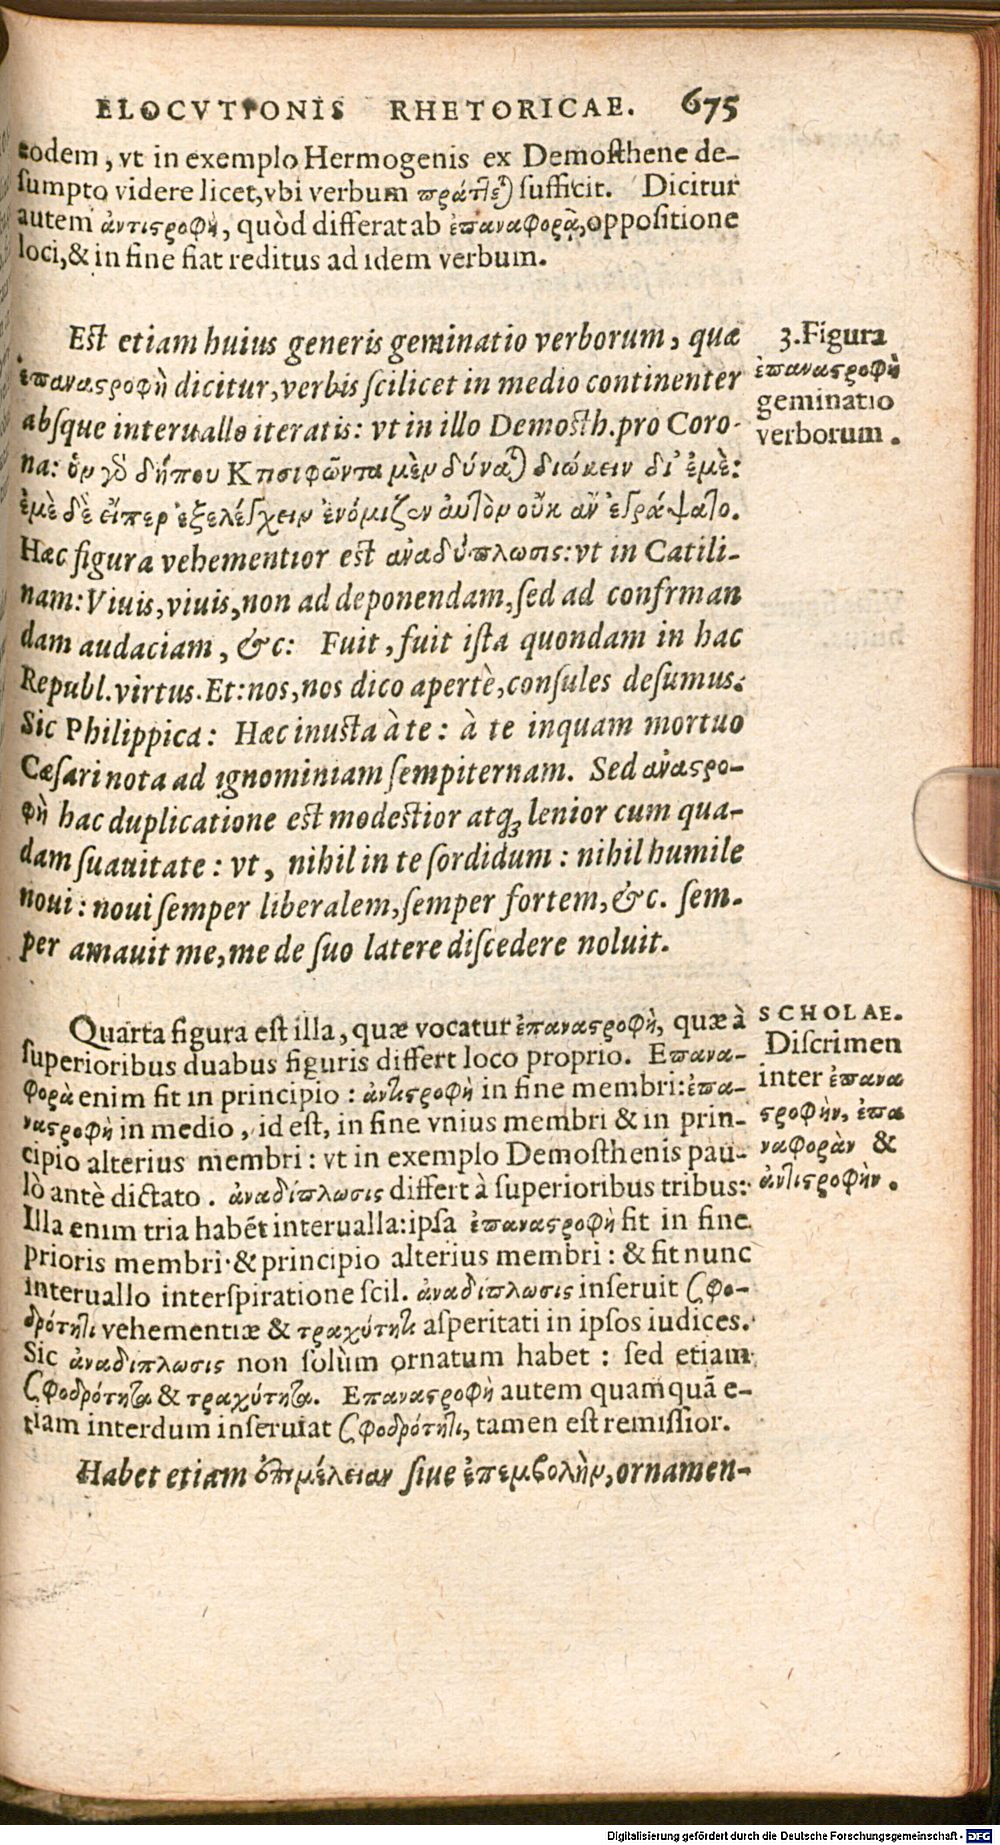 ELOCVTIONIS RHETORICAE. 675
eodem, vt in exemplo Hermogenis ex Demosthene de-
sumpto videre licet, vbi verbum sufficit. Dicitur
autem ἀντιϛροφὴ, quòd differat ab ἐπαναφορᾷ, oppositione
loci, & in fine fiat reditus ad idem verbum.
Est etiam huius generis geminatio verborum, quæ
ἐπαναϛροφὴ dicitur, verbis scilicet in medio continenter
absque interuallo iteratis: vt in illo Demosth. pro Coro-
na: δήπου Κτησιφῶντα μὲν διώκειν δι' ἐμὲ:
ἐμὲ δὲ εἴπερ ἐξελέγχειν ἐνόμιζεν αὐτὸν οὐκ ἂν ἐγράψατο.
Hæc figura vehementior est ἀναδίπλωσις: vt in Catili-
nam: Viuis, viuis, non ad deponendam, sed ad confrman
dam audaciam, &c: Fuit, fuit ista quondam in hac
Republ. virtus. Et: nos, nos dico apertè, consules desumus.
Sic Philippica: Hæc inusta à te: à te inquam mortuo
Cæsari nota ad ignominiam sempiternam. Sed ἀναϛρο-
φὴ hac duplicatione est modestior atq; lenior cum qua-
dam suauitate: vt, nihil in te sordidum: nihil humile
noui: noui semper liberalem, semper fortem, &c. sem-
per amauit me, me de suo latere discedere noluit.
3. Figura
ἐπαναϛροφὴ
geminatio
verborum.
Quarta figura est illa, quæ vocatur ἐπαναϛροφὴ, quæ à
superioribus duabus figuris differt loco proprio. Επανα-
φορὰ enim fit in principio: ἀντιϛροφὴ in fine membri: ἐπα-
ναϛροφὴ in medio, id est, in fine vnius membri & in prin-
cipio alterius membri: vt in exemplo Demosthenis pau-
lò antè dictato. ἀναδίπλωσις differt à superioribus tribus:
Illa enim tria habēt interualla: ipsa ἐπαναϛροφὴ fit in fine
prioris membri & principio alterius membri: & fit nunc
interuallo interspiratione scil. ἀναδίπλωσις inseruit σφο-
δρότητι vehementiæ & τραχύτητι asperitati in ipsos iudices.
Sic ἀναδίπλωσις non solùm ornatum habet: sed etiam
σφοδρότητα & τραχύτητα. Επαναϛροφὴ autem quamquã e-
tiam interdum inseruiat σφοδρότητι, tamen est remissior.
SCHOLAE.
Discrimen
inter ἐπανα
ϛροφὴν, ἐπα
ναφορὰν &
ἀντιϛροφὴν.
Habet etiam ἐπιμέλειαν siue ἐπεμβολὴν, ornamen-
Digitalisierung gefördert durch die Deutsche Forschungsgemeinschaft - DFG